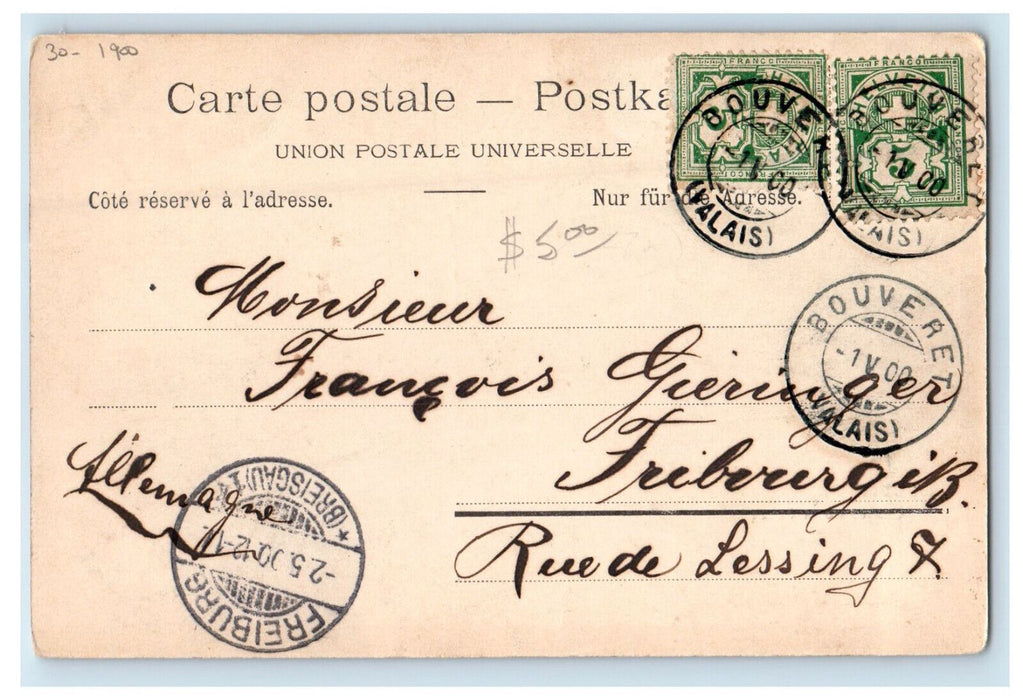 30- 1900
Carte postale — Postka
UNION POSTALE UNIVERSELLE
Côté réservé à l'adresse.
Nur für die Adresse.
FRANCO
FRANCO
HELVETIA
5
BOUVERET
-1 V 00
(VALAIS)
BOUVERET
-1 V 00
(VALAIS)
$5.00
BOUVERET
-1 V 00
(VALAIS)
Monsieur
François Gieringer
Fribourg i/B.
Allemagne
Rue de Lessing 7.
FREIBURG
-2.5.00.12-1
(BREISGAU)